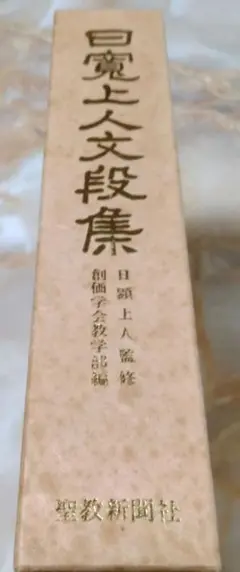 日寛上人文段集
日顕上人監修
創価学会教学部編
聖教新聞社